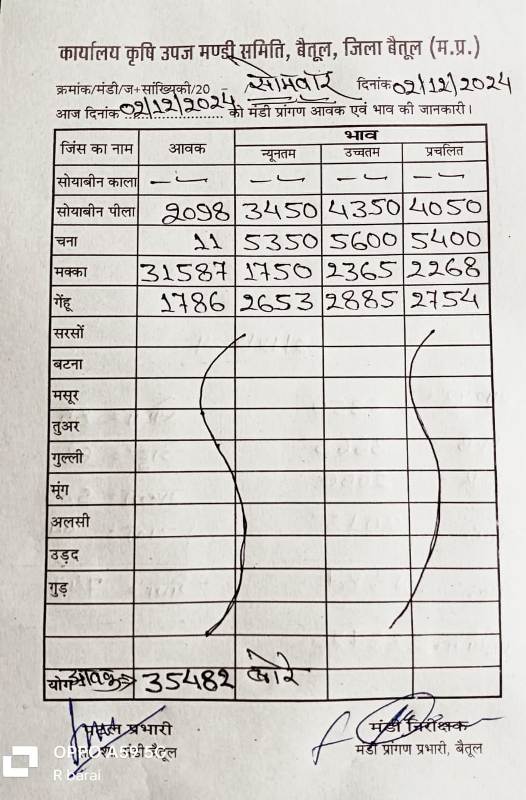 कार्यालय कृषि उपज मण्डी समिति, बैतूल, जिला बैतूल (म.प्र.)
क्रमांक/मंडी/ज+सांख्यिकी/20 - सोमवार दिनांक 02/12/2024
आज दिनांक 02/12/2024 को मंडी प्रांगण आवक एवं भाव की जानकारी।
जिंस का नाम आवक भाव
न्यूनतम उच्चतम प्रचलित
सोयाबीन काला
सोयाबीन पीला 2098 3450 4350 4050
चना 11 5350 5600 5400
मक्का 31587 1750 2365 2268
गेंहू 1786 2653 2885 2754
सरसों
बटना
मसूर
तुअर
गुल्ली
मूंग
अलसी
उड़द
गुड़
योग आवक 35482 बोरे
प्रभारी मंडी निरीक्षक
मंडी बैतूल मंडी प्रांगण प्रभारी, बैतूल
R barai